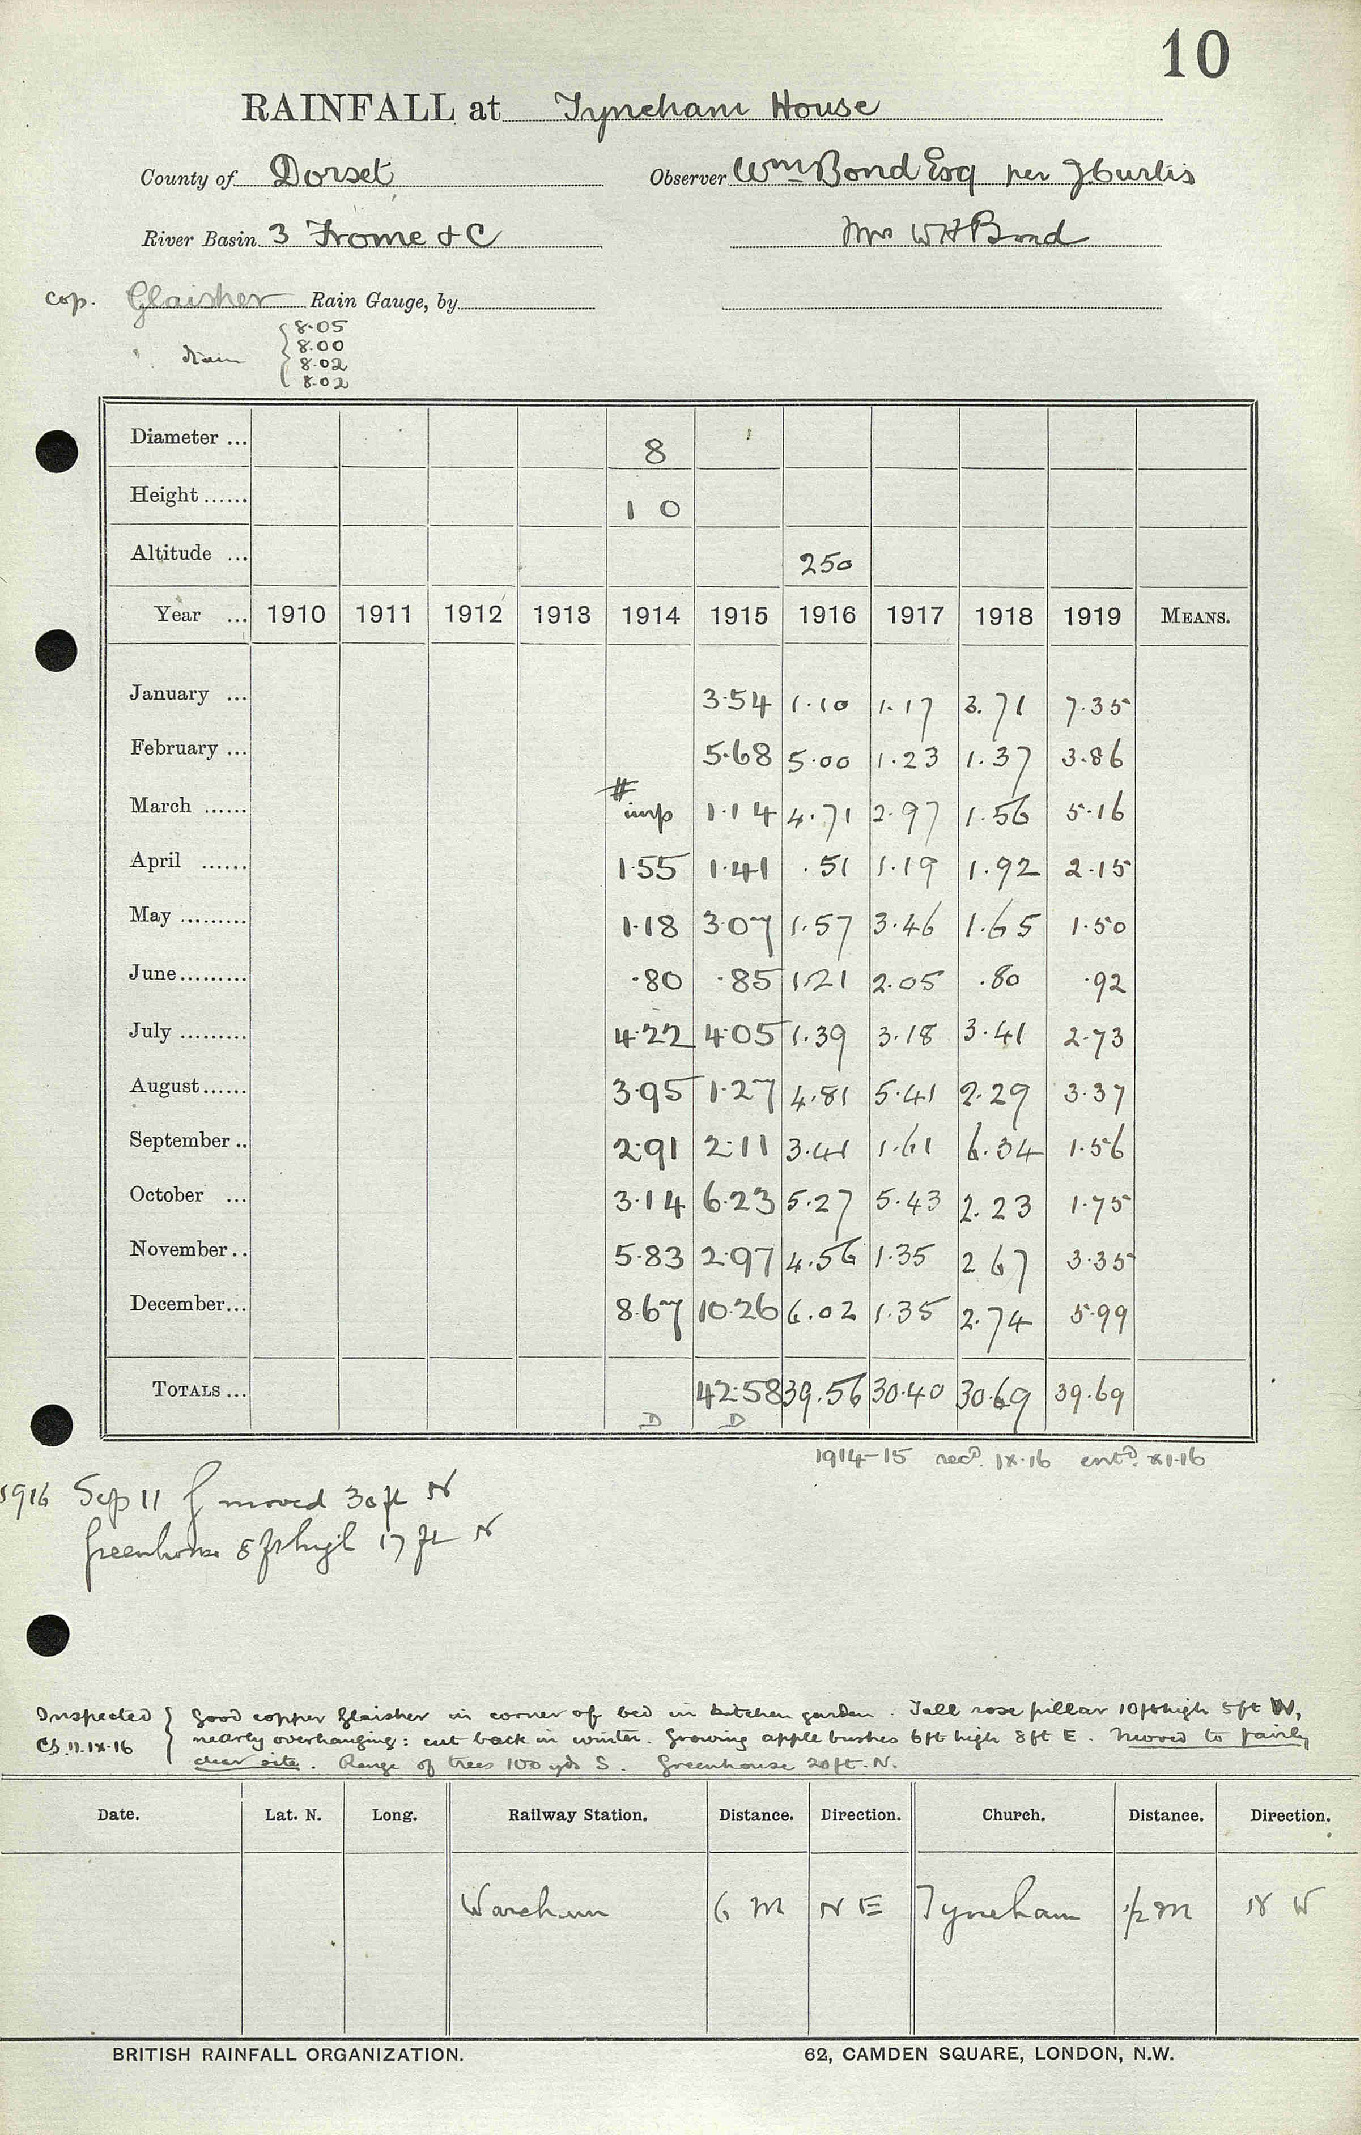 10
RAINFALL at Tyneham House
County of Dorset Observer Wm Bond Esq per J Curtis
River Basin 3 Frome & C Mrs WH Bond
cop. Glaisher Rain Gauge, by
" diam { 8.05
8.00
8.02
8.02
Diameter ... 8
Height ...... 1 0
Altitude ... 250
Year ... 1910 1911 1912 1913 1914 1915 1916 1917 1918 1919 MEANS.
January ... 3.54 1.10 1.17 3.71 7.35
February ... 5.68 5.00 1.23 1.37 3.86
March ...... # imp 1.14 4.71 2.97 1.56 5.16
April ...... 1.55 1.41 .51 1.19 1.92 2.15
May ......... 1.18 3.07 1.57 3.46 1.65 1.50
June......... .80 .85 1.21 2.05 .80 .92
July ......... 4.22 4.05 1.39 3.18 3.41 2.73
August...... 3.95 1.27 4.81 5.41 2.29 3.37
September .. 2.91 2.11 3.41 1.61 6.34 1.56
October ... 3.14 6.23 5.27 5.43 2.23 1.75
November.. 5.83 2.97 4.56 1.35 2 67 3.35
December... 8.67 10.26 6.02 1.35 2.74 5.99
TOTALS ... 42.58 39.56 30.40 30.69 39.69
D D
1914-15 recd. IX.16 entd. XI.16
1916 Sep 11 G moved 30 ft N
Greenhouse 8 ft high 17 ft N
Inspected } Good copper Glaisher in corner of bed in kitchen garden. Tall rose pillar 10ft high 5ft W,
CS.11.IX.16 nearly overhanging: cut back in winter. Growing apple bushes 6ft high 8ft E. Moved to fairly
clear site. Range of trees 100 yds S. Greenhouse 20ft. N.
Date. Lat. N. Long. Railway Station. Distance. Direction. Church. Distance. Direction.
Wareham 6 M N E Tyneham 1/2 M N W
BRITISH RAINFALL ORGANIZATION. 62, CAMDEN SQUARE, LONDON, N.W.